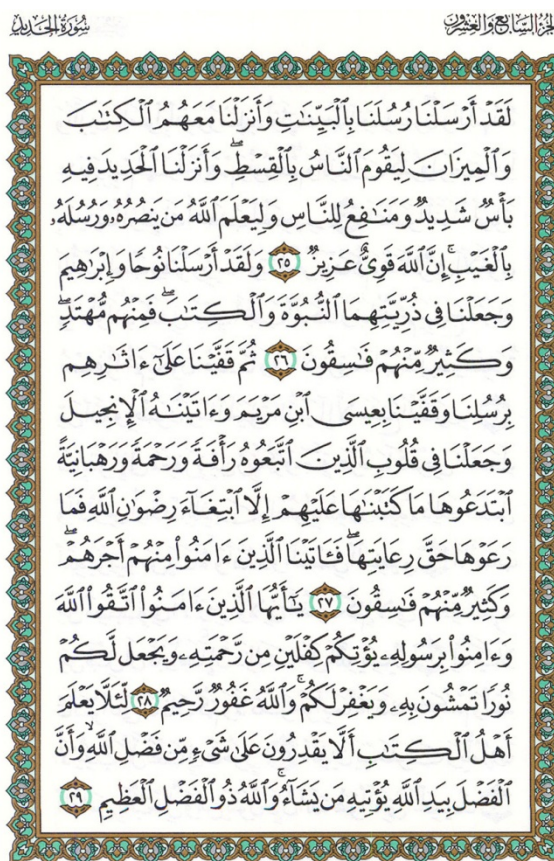 الجزء السابع والعشرون
سورة الحديد
لَقَدۡ أَرۡسَلۡنَا رُسُلَنَا بِٱلۡبَيِّنَٰتِ وَأَنزَلۡنَا مَعَهُمُ ٱلۡكِتَٰبَ
وَٱلۡمِيزَانَ لِيَقُومَ ٱلنَّاسُ بِٱلۡقِسۡطِۖ وَأَنزَلۡنَا ٱلۡحَدِيدَ فِيهِ
بَأۡسٞ شَدِيدٞ وَمَنَٰفِعُ لِلنَّاسِ وَلِيَعۡلَمَ ٱللَّهُ مَن يَنصُرُهُۥ وَرُسُلَهُۥ
بِٱلۡغَيۡبِۚ إِنَّ ٱللَّهَ قَوِيٌّ عَزِيزٞ ٢٥ وَلَقَدۡ أَرۡسَلۡنَا نُوحٗا وَإِبۡرَٰهِيمَ
وَجَعَلۡنَا فِي ذُرِّيَّتِهِمَا ٱلنُّبُوَّةَ وَٱلۡكِتَٰبَۖ فَمِنۡهُم مُّهۡتَدٖۖ
وَكَثِيرٞ مِّنۡهُمۡ فَٰسِقُونَ ٢٦ ثُمَّ قَفَّيۡنَا عَلَىٰٓ ءَاثَٰرِهِم
بِرُسُلِنَا وَقَفَّيۡنَا بِعِيسَى ٱبۡنِ مَرۡيَمَ وَءَاتَيۡنَٰهُ ٱلۡإِنجِيلَ
وَجَعَلۡنَا فِي قُلُوبِ ٱلَّذِينَ ٱتَّبَعُوهُ رَأۡفَةٗ وَرَحۡمَةٗۚ وَرَهۡبَانِيَّةً
ٱبۡتَدَعُوهَا مَا كَتَبۡنَٰهَا عَلَيۡهِمۡ إِلَّا ٱبۡتِغَآءَ رِضۡوَٰنِ ٱللَّهِ فَمَا
رَعَوۡهَا حَقَّ رِعَايَتِهَاۖ فَـَٔاتَيۡنَا ٱلَّذِينَ ءَامَنُواْ مِنۡهُمۡ أَجۡرَهُمۡۖ
وَكَثِيرٞ مِّنۡهُمۡ فَٰسِقُونَ ٢٧ يَٰٓأَيُّهَا ٱلَّذِينَ ءَامَنُواْ ٱتَّقُواْ ٱللَّهَ
وَءَامِنُواْ بِرَسُولِهِۦ يُؤۡتِكُمۡ كِفۡلَيۡنِ مِن رَّحۡمَتِهِۦ وَيَجۡعَل لَّكُمۡ
نُورٗا تَمۡشُونَ بِهِۦ وَيَغۡفِرۡ لَكُمۡۚ وَٱللَّهُ غَفُورٞ رَّحِيمٞ ٢٨ لِّئَلَّا يَعۡلَمَ
أَهۡلُ ٱلۡكِتَٰبِ أَلَّا يَقۡدِرُونَ عَلَىٰ شَيۡءٖ مِّن فَضۡلِ ٱللَّهِ وَأَنَّ
ٱلۡفَضۡلَ بِيَدِ ٱللَّهِ يُؤۡتِيهِ مَن يَشَآءُۚ وَٱللَّهُ ذُو ٱلۡفَضۡلِ ٱلۡعَظِيمِ ٢٩